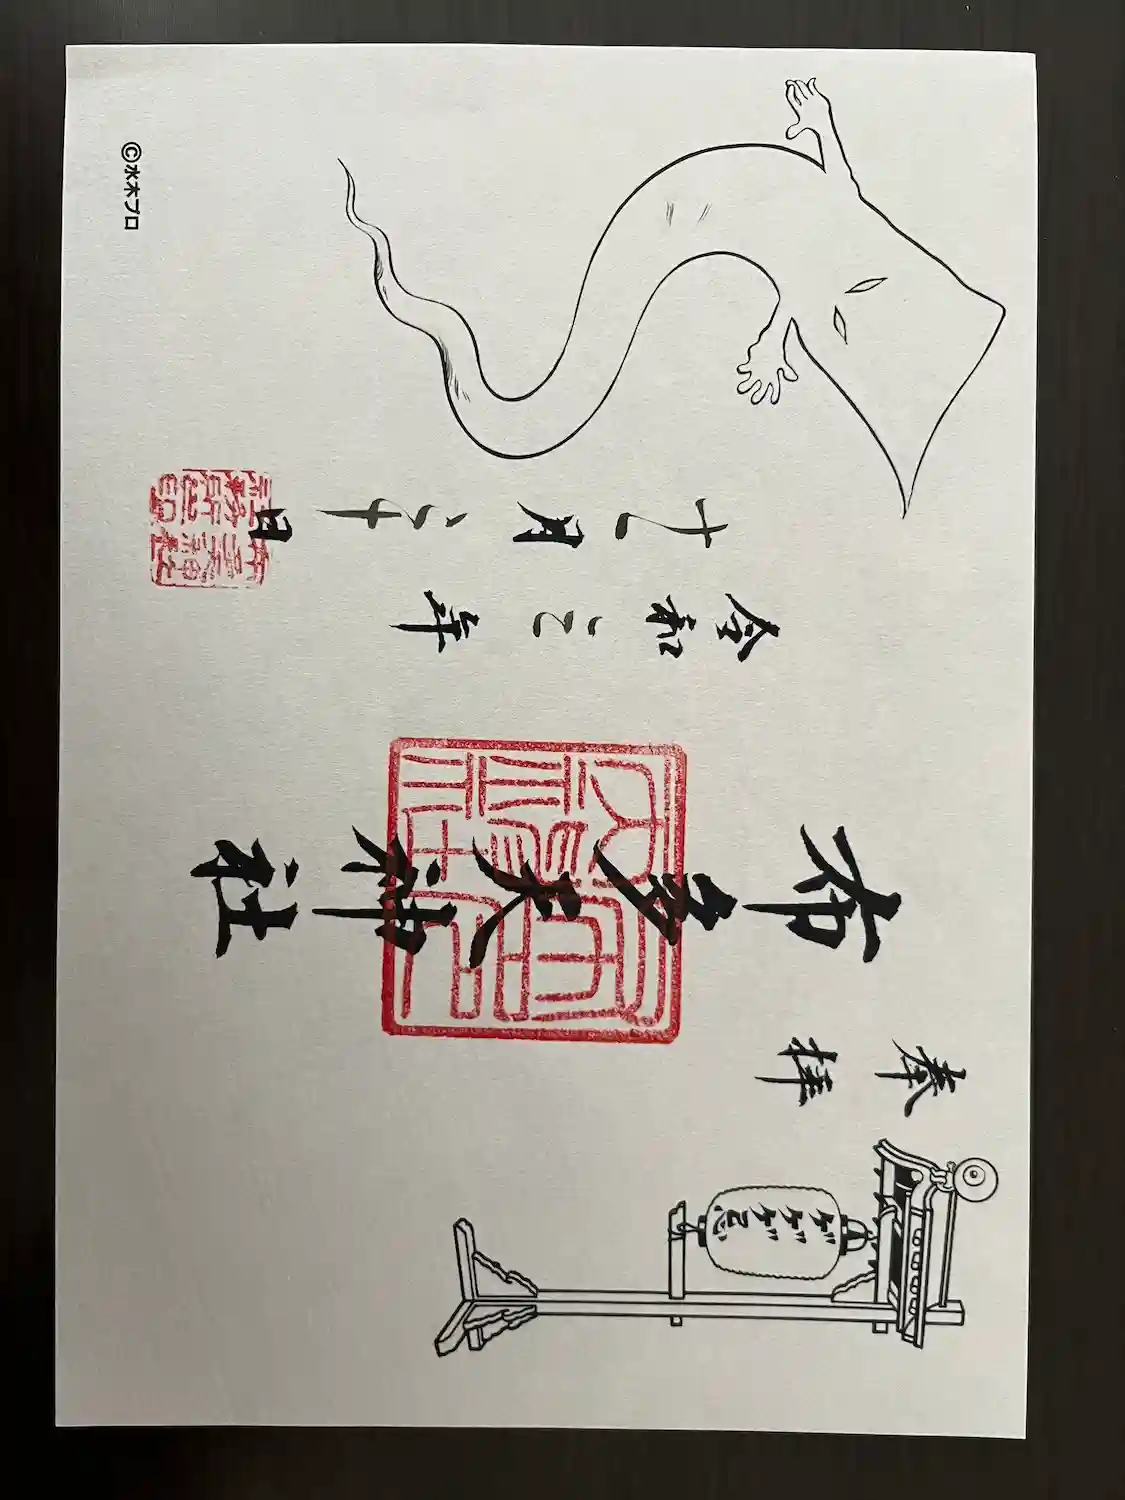 奉拝
布多天神社
令和三年
十一月二十日
ゲゲゲ忌
©水木プロ